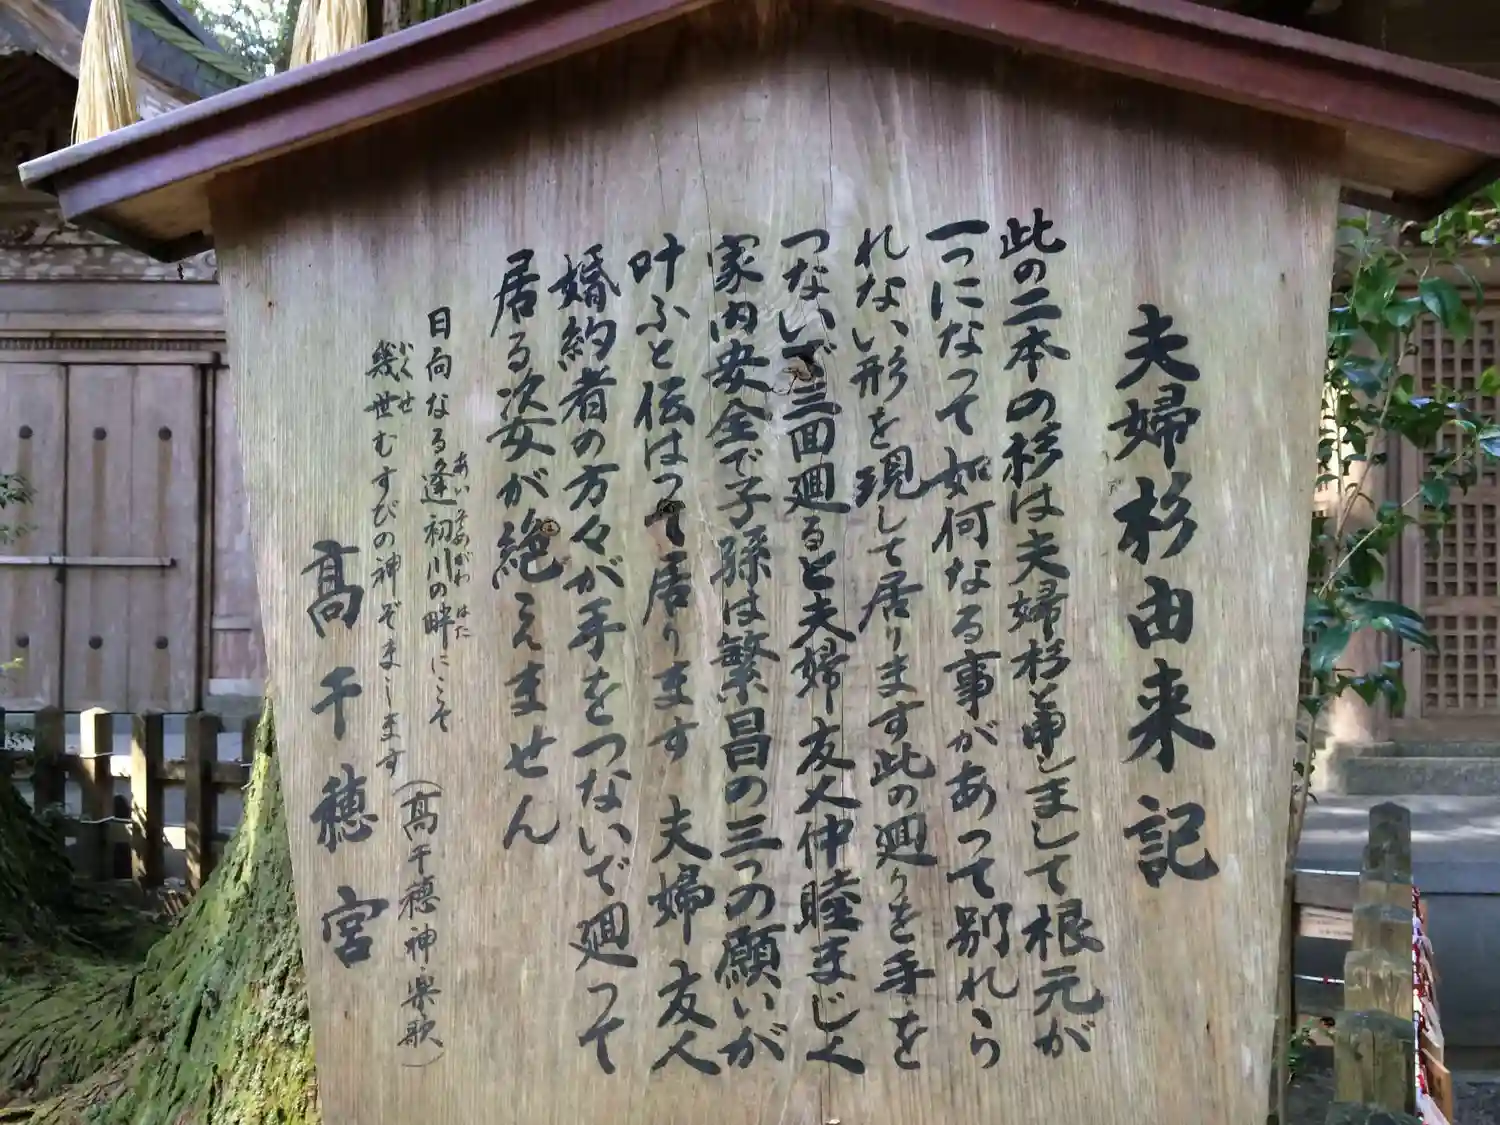 夫婦杉由来記
此の二本の杉は夫婦杉と申しまして根元が
一つになって如何なる事があって別れら
れない形を現して居ります此の廻りを手を
つないで三回廻ると夫婦友人仲睦まじく
家内安全で子孫は繁昌の三つの願いが
叶ふと伝はって居ります 夫婦友人
婚約者の方々が手をつないで廻って
居る次女が絶えません
日向なる逢初川の畔にこそ
あいそめがわ はた
幾世むすびの神ぞまします(高千穂神楽歌)
いくせ
高千穂宮